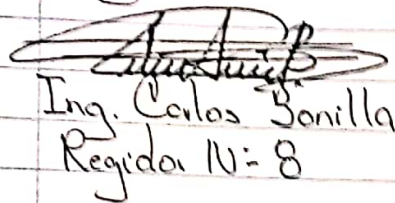 Ing. Carlos Bonilla
Regidor N= 8